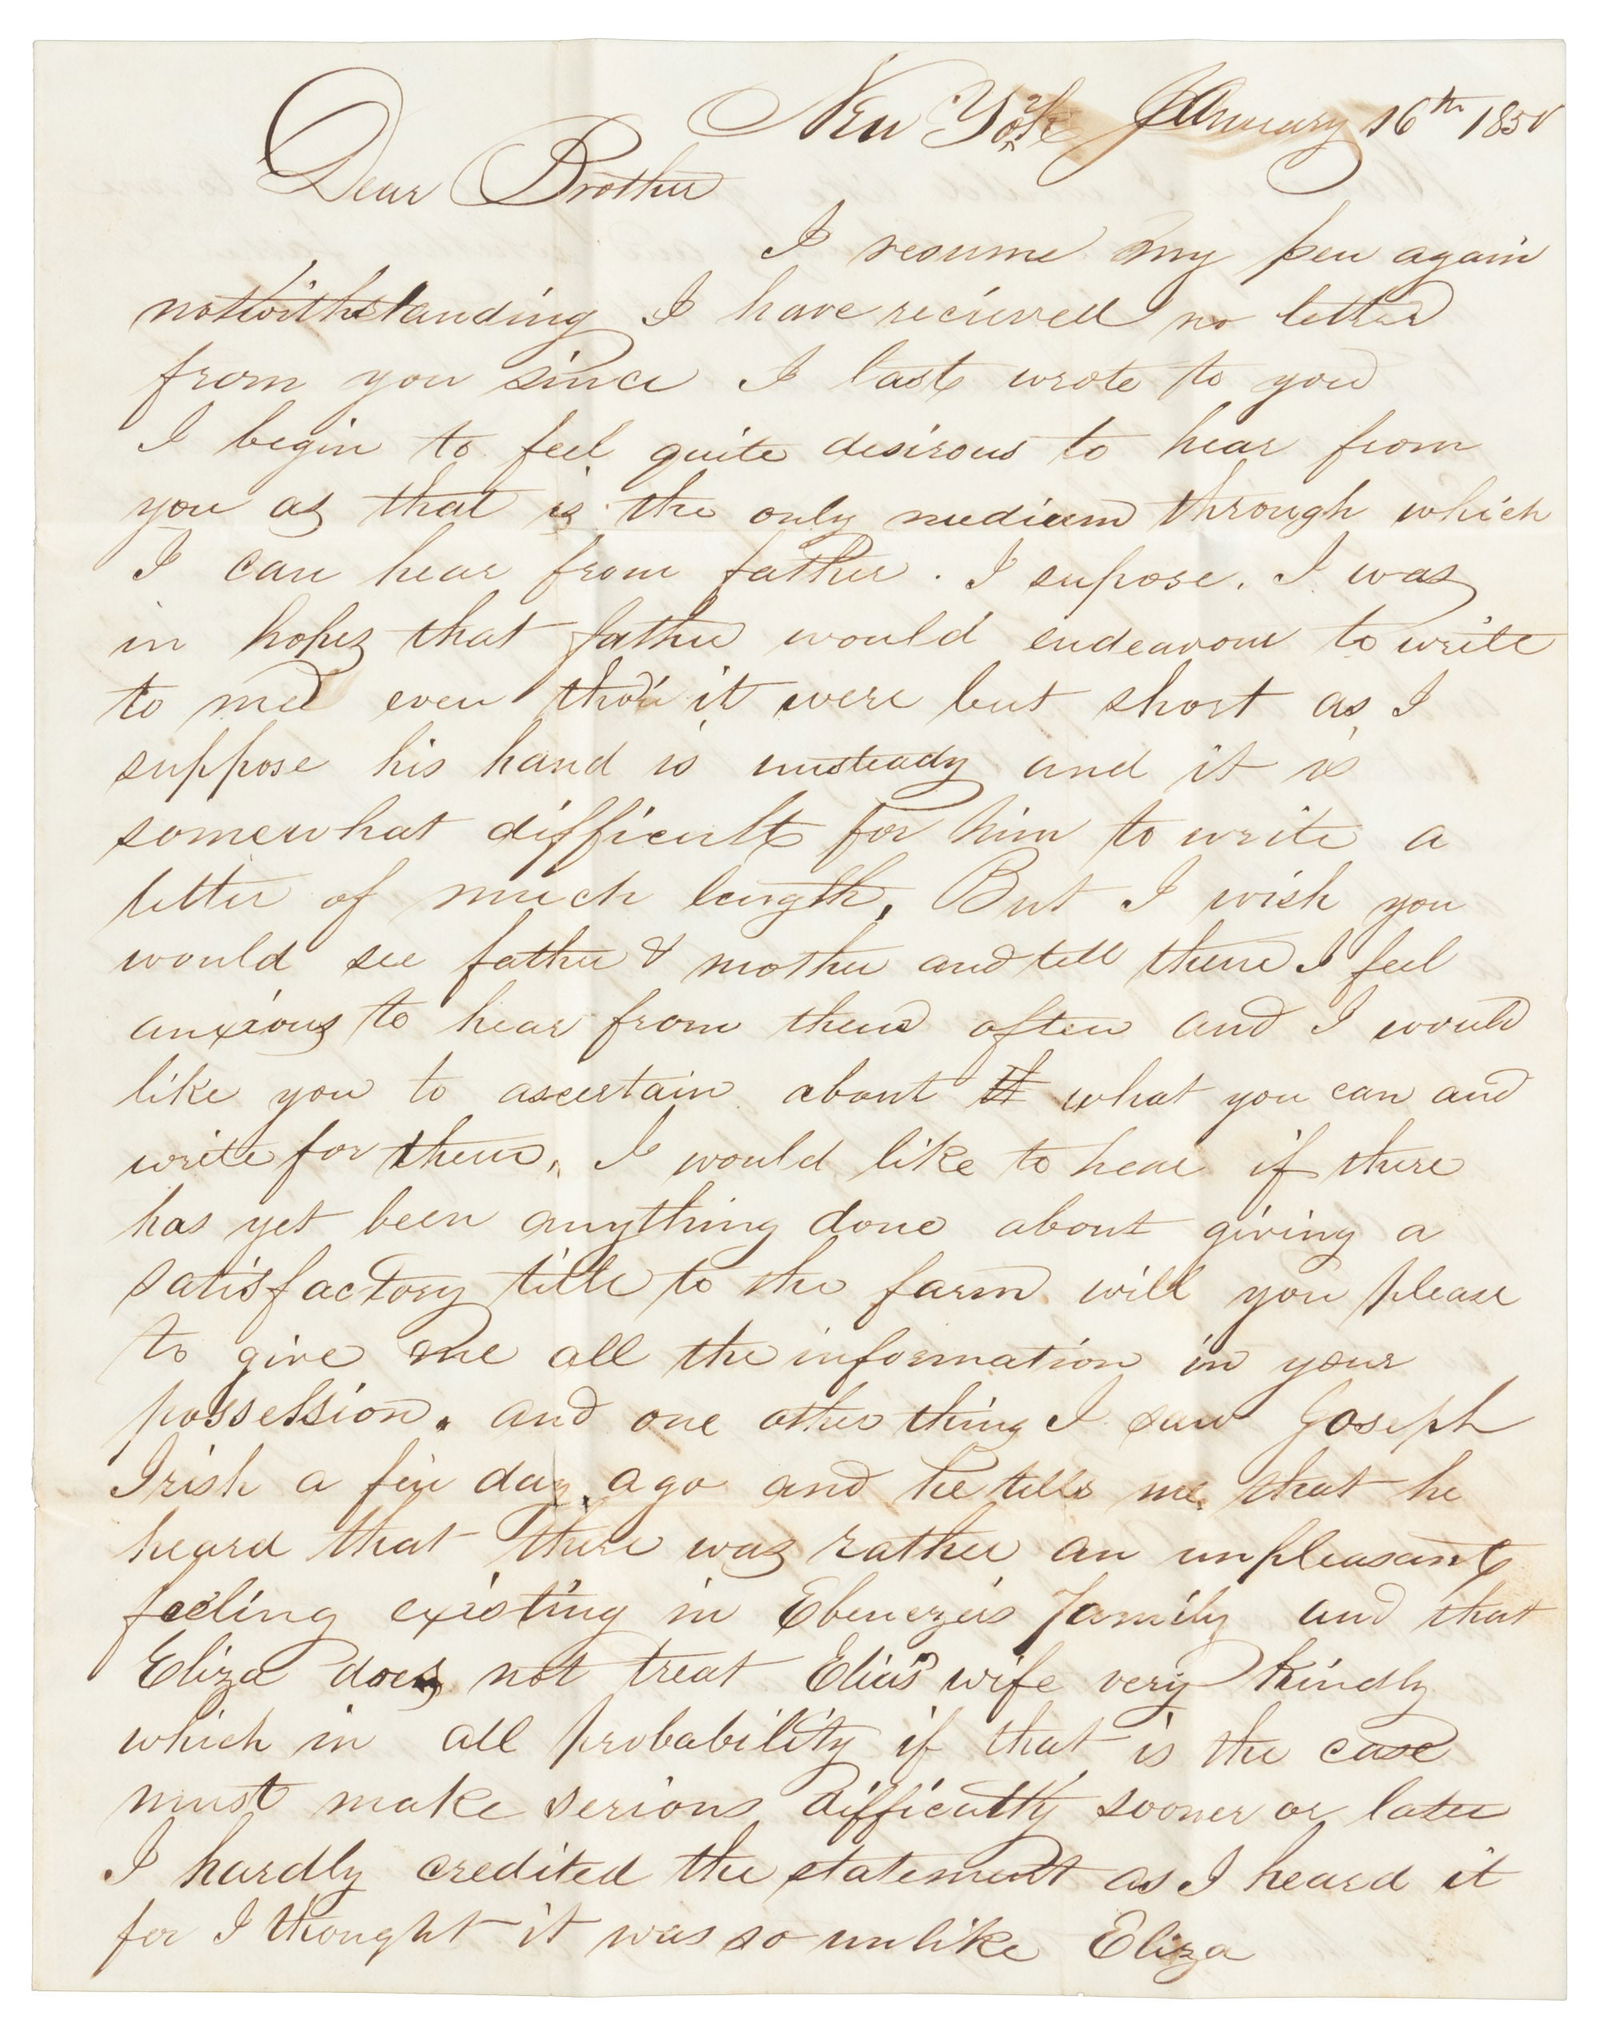 New York January 16th 1850
Dear Brother
I resume my pen again
notwithstanding I have recieved no letter
from you since I last wrote to you
I begin to feel quite desirous to hear from
you as that is the only medium through which
I can hear from father. I supose. I was
in hopes that father would endeavour to write
to me even tho' it were but short as I
suppose his hand is unsteady and it is
somewhat difficult for him to write a
letter of much length, But I wish you
would see father & mother and tell them I feel
anxious to hear from them often and I would
like you to ascertain about what you can and
write for them, I would like to hear if there
has yet been anything done about giving a
satisfactory title to the farm will you please
to give me all the information in your
possession. and one other thing I saw Joseph
Irish a few days ago and he tells me that he
heard that there was rather an unpleasant
feeling existing in Ebenezers family and that
Eliza does not treat Elias wife very kindly
which in all probability if that is the case
must make serious difficulty sooner or later
I hardly credited the statement as I heard it
for I thought it was so unlike Eliza